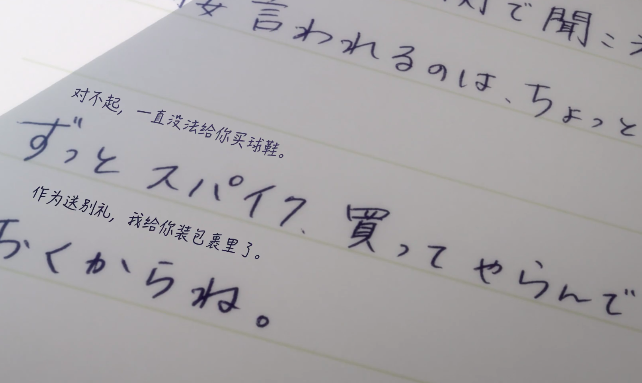 で聞こ
言われるのは、ちょっと
对不起，一直没法给你买球鞋。
ずっと スパイク、買ってやらんで
作为送别礼，我给你装包裹里了。
おくからね。